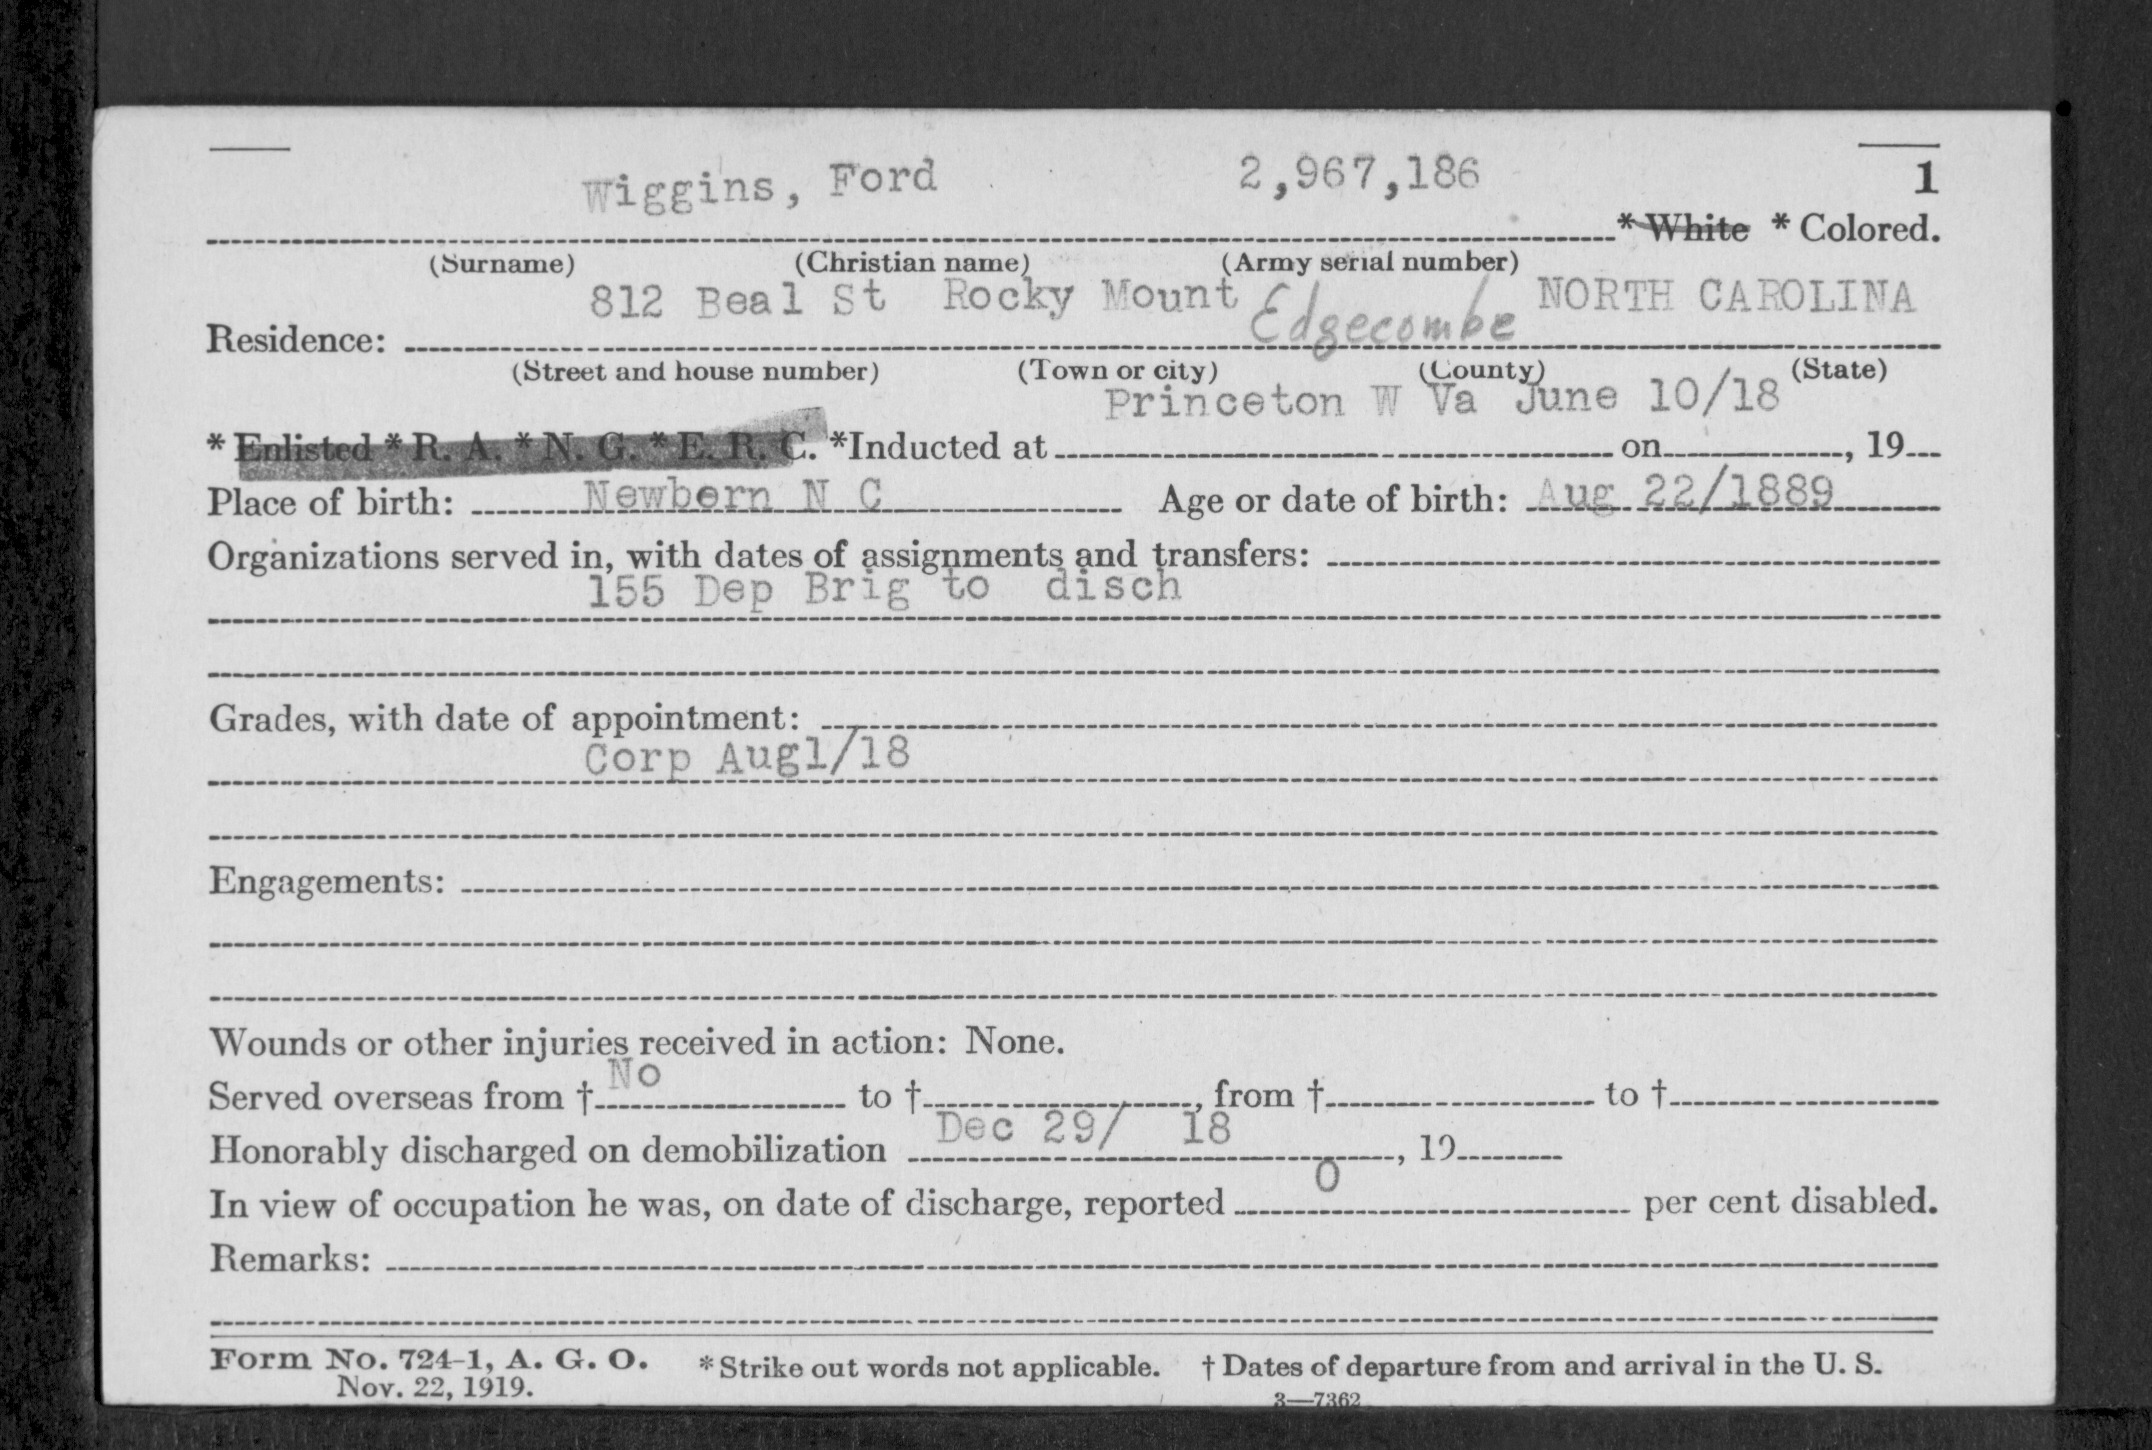 Wiggins, Ford 2,967,186 1
* White * Colored.
(Surname) (Christian name) (Army serial number)
812 Beal St Rocky Mount Edgecombe NORTH CAROLINA
Residence:
(Street and house number) (Town or city) (County) (State)
Princeton W Va June 10/18
* Enlisted * R. A. * N. G. * E. R. C. *Inducted at on , 19
Place of birth: Newbern N C Age or date of birth: Aug 22/1889
Organizations served in, with dates of assignments and transfers:
155 Dep Brig to disch
Grades, with date of appointment:
Corp Aug1/18
Engagements:
Wounds or other injuries received in action: None.
No
Served overseas from † to † , from † to †
Dec 29/ 18
Honorably discharged on demobilization , 19
0
In view of occupation he was, on date of discharge, reported per cent disabled.
Remarks:
Form No. 724-1, A. G. O. * Strike out words not applicable. † Dates of departure from and arrival in the U. S.
Nov. 22, 1919.
3—7362